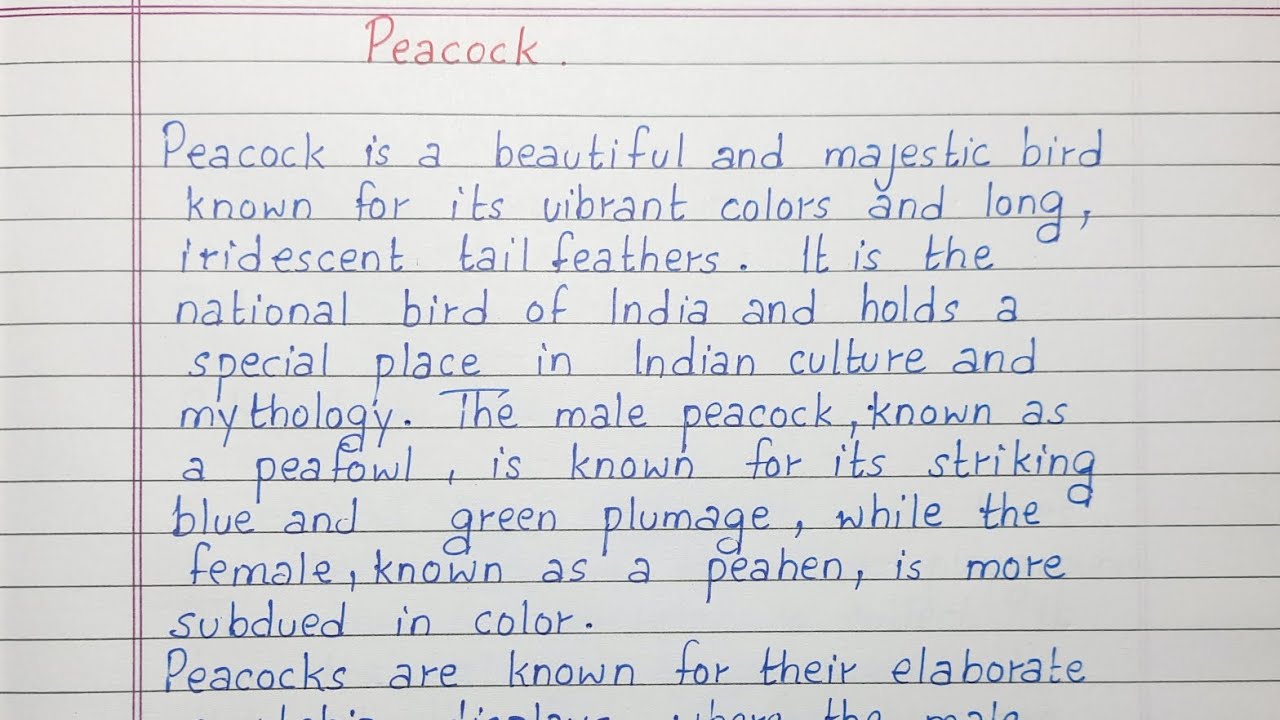 Peacock.
Peacock is a beautiful and majestic bird
known for its vibrant colors and long,
iridescent tail feathers. It is the
national bird of India and holds a
special place in Indian culture and
mythology. The male peacock, known as
a peafowl, is known for its striking
blue and green plumage, while the
female, known as a peahen, is more
subdued in color.
Peacocks are known for their elaborate
where the male